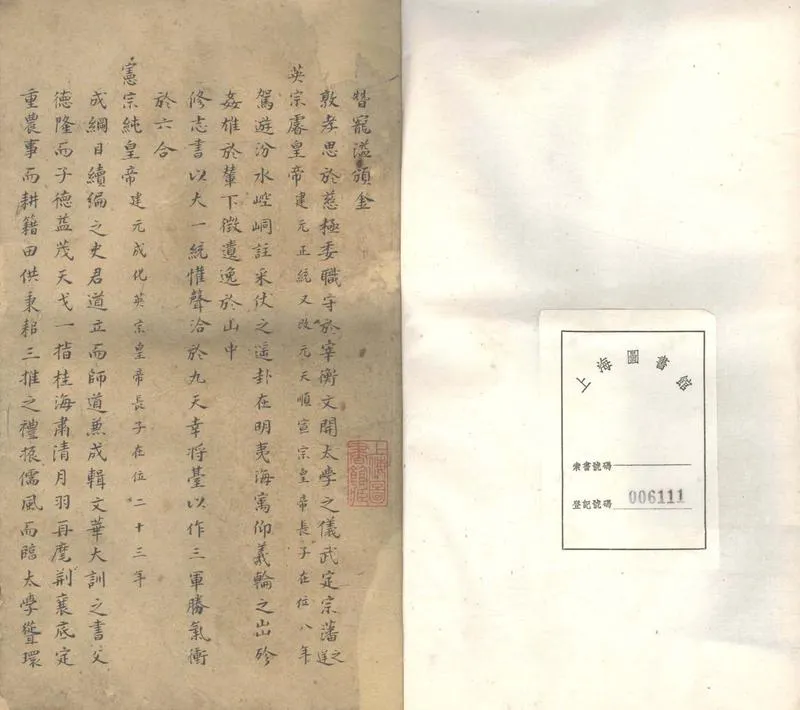 上海圖書館
索書號碼
登記號碼 006111
上海圖書館藏
替寵溢頒金
敦孝思於慈極委職守於宰衡文開太學之儀武定宗藩之逆
英宗睿皇帝建元正統又改元天順宣宗皇帝長子在位八年
駕遊汾水崆峒註采伏之遥卦在明夷海寓仰義輪之出殄
姦雄於輦下徵遺逸於山中
修志書以大一統惟聲洽於九天幸將臺以作三軍勝氣衝
於六合
憲宗純皇帝建元成化英宗皇帝長子在位二十三年
成綱目續編之史君道立而師道兼成輯文華大訓之書父
德隆而子德益茂天戈一指桂海肅清月羽再麾荆襄底定
重農事而耕籍田供秉耜三推之禮振儒風而臨太學聳環